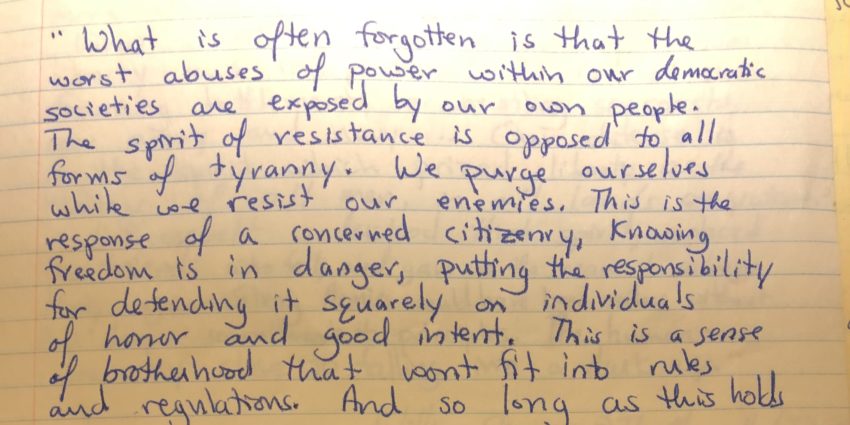 " What is often forgotten is that the
worst abuses of power within our democratic
societies are exposed by our own people.
The spirit of resistance is opposed to all
forms of tyranny. We purge ourselves
while we resist our enemies. This is the
response of a concerned citizenry, knowing
freedom is in danger, putting the responsibility
for defending it squarely on individuals
of honor and good intent. This is a sense
of brotherhood that wont fit into rules
and regulations. And so long as this holds